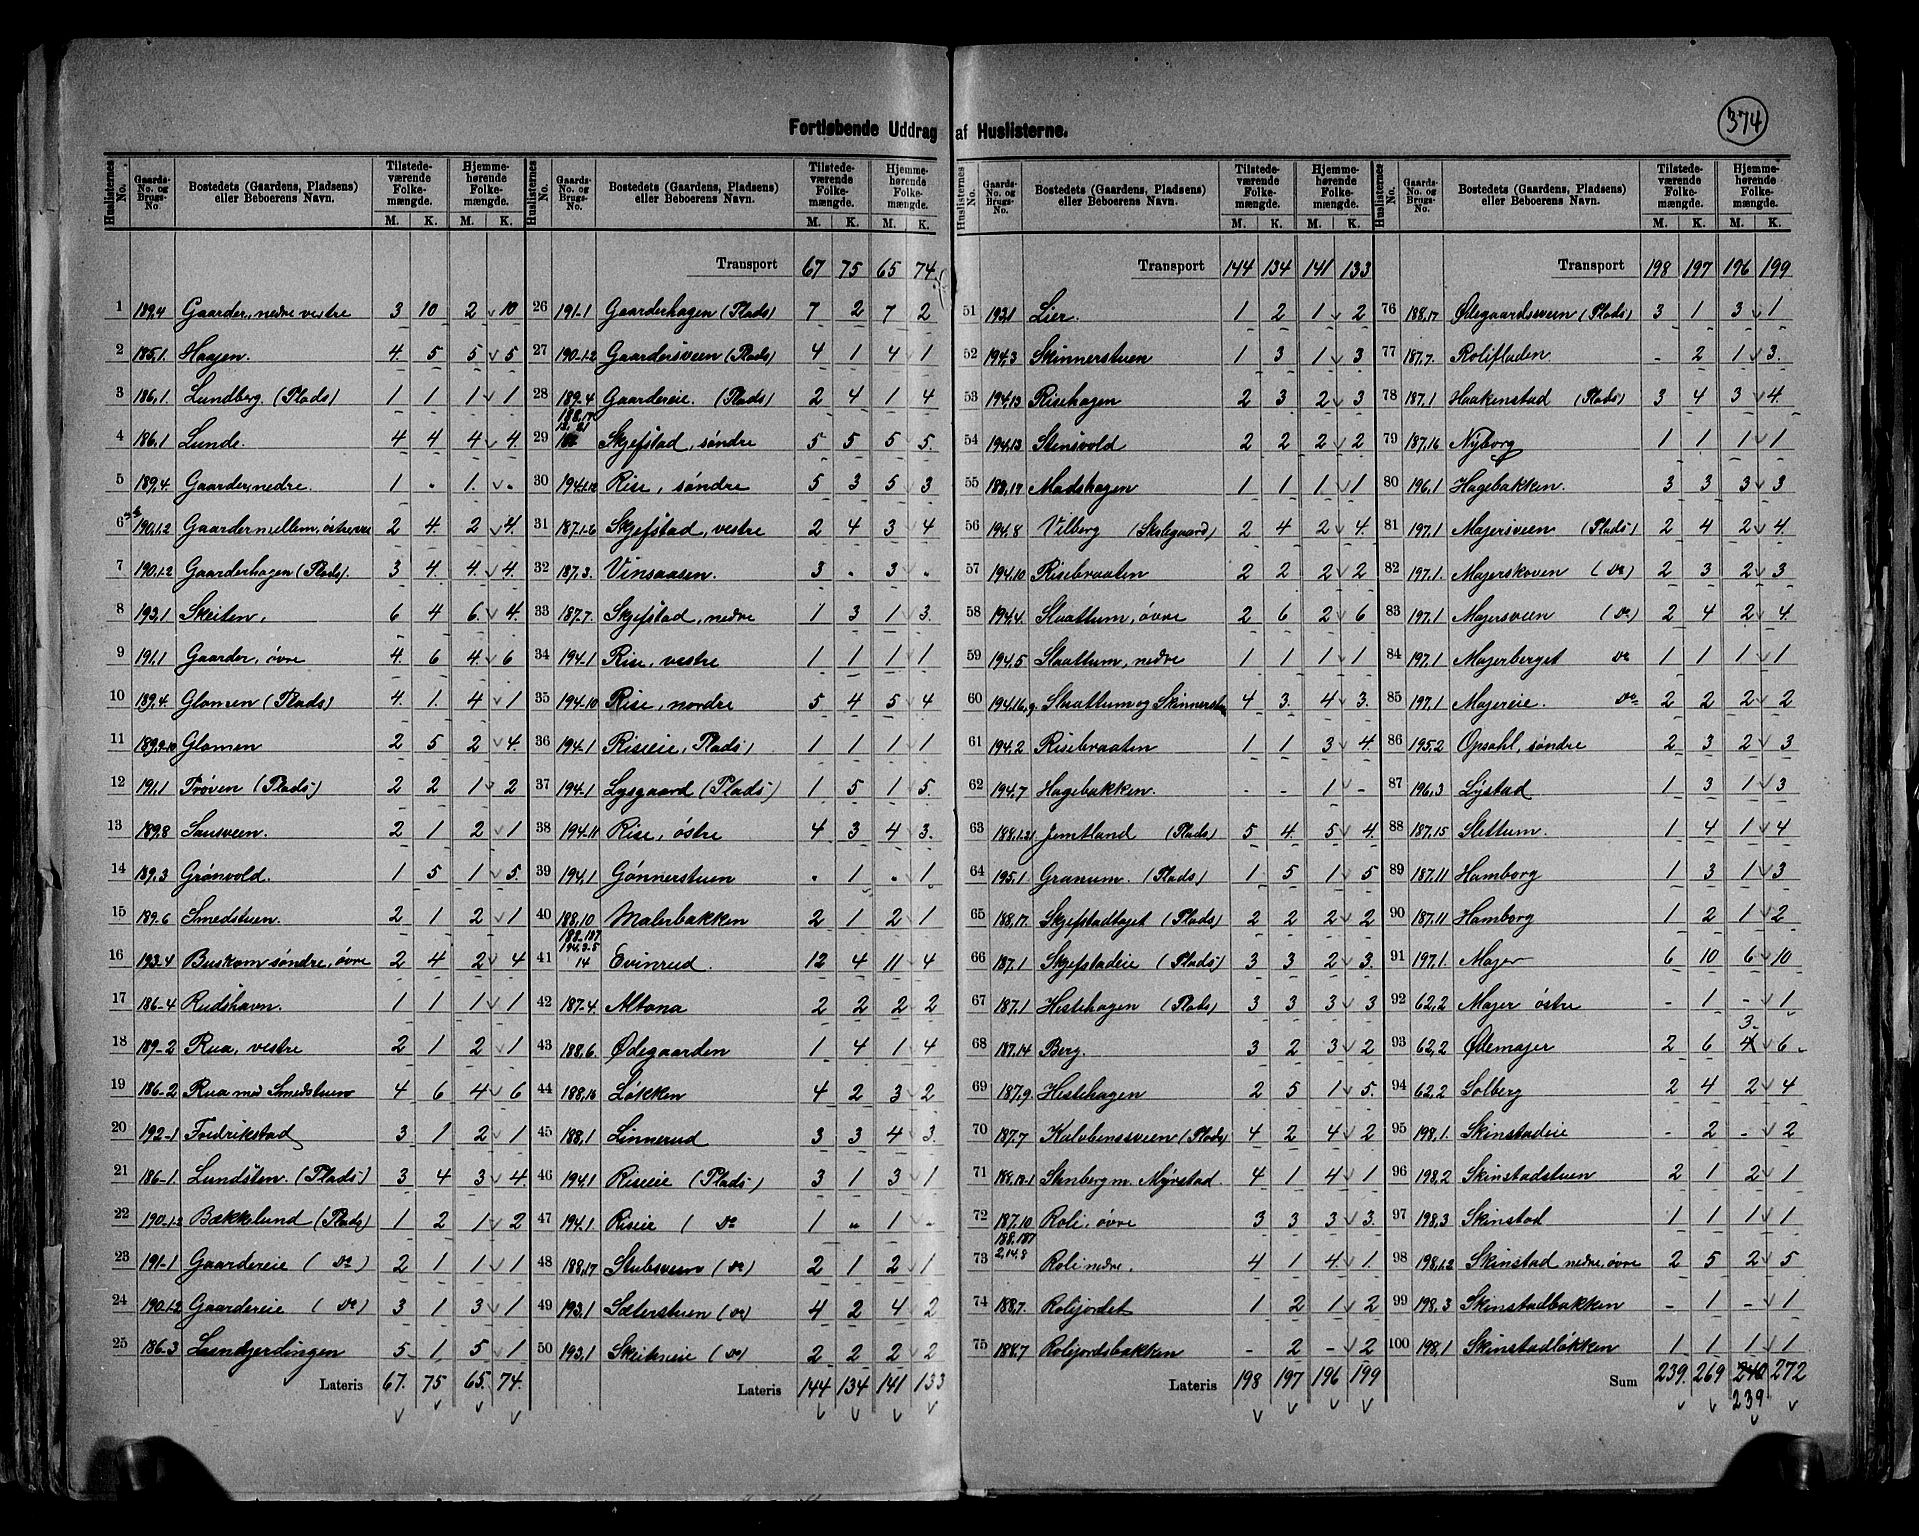 374
Fortløbende Uddrag af Huslisterne.
Huslisternes No. | Gaards-No. og Brugs-No. | Bostedets (Gaardens, Pladsens) eller Beboerens Navn. | Tilstedeværende Folkemængde. M. K. | Hjemmehørende Folkemængde. M. K.
1 189,4 Gaarder, nedre vestre 3 10 2 10
2 185,1. Haajen. 4 5 5 5
3 186,1. Lundberg (Plads) 1 1 1 1
4 186,1 Lunde. 4 4 4 4
5 189,4. Gaarder, nedre. 1 . 1 .
6 190,1.2 Gaarder mellem, østre 2 4 2 4
7 190,1.2 Gaarderhagen (Plads). 3 4 4 4
8 193,1 Skeiten. 6 4 6 4
9 191,1 Gaarder, øvre 4 6 4 6
10 189,4. Glomen (Plads) 4 1 4 1
11 189,9-10 Glomen 2 5 2 4
12 191,1 Trøven (Plads) 2 2 1 2
13 189,8 Sausveen. 2 1 2 1
14 189,3 Grønvold. 1 5 1 5
15 189,6 Smedstuen. 2 1 2 1
16 193,4 Buskom søndre, øvre 2 4 2 4
17 186-4 Rudshavn. 1 1 1 1
18 189-2 Rua, vestre 2 1 2 1
19 186-2 Rua med Smedstuen 4 6 4 6
20 192-1 Fredrikstad 3 1 2 1
21 186-1. Lundsten. (Plads) 3 4 3 4
22 190-1.2 Bækkelund (Plads) 1 2 1 2
23 191-1 Gaardereie (Do) 2 1 1 1
24 190-1.2 Gaardereie (Do) 3 1 3 1
25 186-3 Lundgjerdingen 5 1 5 1
Lateris 67. 75 65. 74.
Transport 67 75 65 74
26 191-1 Gaarderhagen (Plads) 7 2 7 2
27 190-1.2 Gaardersveen (Plads) 4 1 4 1
28 189,4 Gaardereie. (Plads) 2 4 1 4
29 Skjefstad, søndre 5 5 5 5
30 194,1.12 Rise, søndre 5 3 5 3
31 187-1-6 Skjefstad, vestre 2 4 3 4
32 187,3. Vinsaasen. 3 . 3 .
33 187,7. Skjefstad, nedre 1 3 1 3
34 194-1 Rise, vestre 1 1 1 1
35 194-10 Rise, nordre 5 4 5 4
36 194-1 Riseeie, Plads) 1 1 1 1
37 194-1 Lysgaard (Plads) 1 5 1 5
38 194-11 Rise, østre 4 3 4 3
39 194,1 Gønnerstuen . 1 . 1
40 188,10 Malerbakken 2 1 2 1
41 188-187 194,3.5 14 Evinrud. 12 4 11 4
42 187-4. Altona 2 2 2 2
43 188,6. Ødegaarden 1 4 1 4
44 188,16 Løkken 4 2 3 2
45 188,1 Linnerud 3 3 4 3
46 194,1 Riseeie (Plads) 3 1 3 1
47 194,1. Riseie (Do 1 „ 1 .
48 188,17 Stubsveen (Do) 2 1 2 1
49 193,1 Sæterstuen (Do) 4 2 4 2
50 193,1 Skeiteneie (Do) 2 2 2 2
Lateris 144 134 141 133
Transport 144 134 141 133
51 192,1 Lier. 1 2 1 2
52 194,3 Skinnerstuen 1 3 1 3
53 194,13 Risehagen 2 3 2 3
54 194,13 Stensvold 2 2 2 2
55 188,17 Madshagen 1 1 1 1
56 194,8 Vilberg (Skolegaard) 2 4 2 4
57 194,10 Risebraaten 2 2 2 2
58 194,4. Slaattum, øvre 2 6 2 6
59 194,5 Slaattum, nedre 1 1 1 1
60 194,16,9 Slaattum og Skinnerstu 4 3 4 3
61 194,2 Risebraaten 1 1 3 4
62 194,7 Hagebakken. - - 1 -
63 188,1.21 Jemtland (Plads) 5 4 5 4
64 195,1 Granum. (Plads) 1 5 1 5
65 188,17. Skjefstadtajet (Plads) 2 2 2 2
66 187,1 Skjefstadeie (Plads) 3 3 2 3
67 187,1 Hestehagen (Plads) 3 3 3 3
68 187,14 Berg. 3 2 3 2
69 187,9. Hestehagen 2 5 1 5
70 187,7 Kalvbensveen (Plads) 4 2 4 2
71 188,19-1 Stenberg m. Myrstad. 4 1 4 1
72 187,10 Roli, øvre 3 3 3 3
73 188,187 2,14,8 Roli nedre. 4 1 4 1
74 188,7. Rolijordet 1 2 1 2
75 188,7 Rolijordsbakken - 2 - 2
Lateris 198 197 196 199
Transport 198 197 196 199
76 188,17 Ødegaardsveen (Plads) 3 1 3 1
77 187,7. Rolifladen - 2 1 3
78 187,1 Haakenstad (Plads) 3 4 3 4
79 187,16 Nyborg 1 1 1 1
80 196,1 Hagebakken. 3 3 3 3
81 197,1 Majersveen (Plads) 2 4 2 4
82 197,1. Majerskoven (Do) 2 3 2 3
83 197,1 Majersveen (Do) 2 4 2 4
84 197,1 Majerberget Do 1 1 1 1
85 197,1 Majereie. Do 2 2 2 2
86 195,2 Opsahl, søndre 2 3 2 3
87 196,3 Lystad 1 3 1 3
88 187,15 Slettum. 1 4 1 4
89 187,11 Hamborg 1 3 1 3
90 187,11 Hamborg 1 2 1 2
91 197,1. Majer 6 10 6 10
92 62,2 Majer østre - 1 - 1
93 62,2 Ødemajer 2 6 4 3 6
94 62,2 Solberg 2 4 2 4
95 198,1. Skinstadeie - 2 - 2
96 198,2 Skinstadstuen 2 1 2 1
97 198,3 Skinstad 1 1 1 1
98 198,1.2 Skinstad nedre, øvre 2 5 2 5
99 198,3 Skinstadbakken - 1 - 1
100 198,1 Skinstadløkken 1 1 1 1
Sum 239. 269 240 272
239